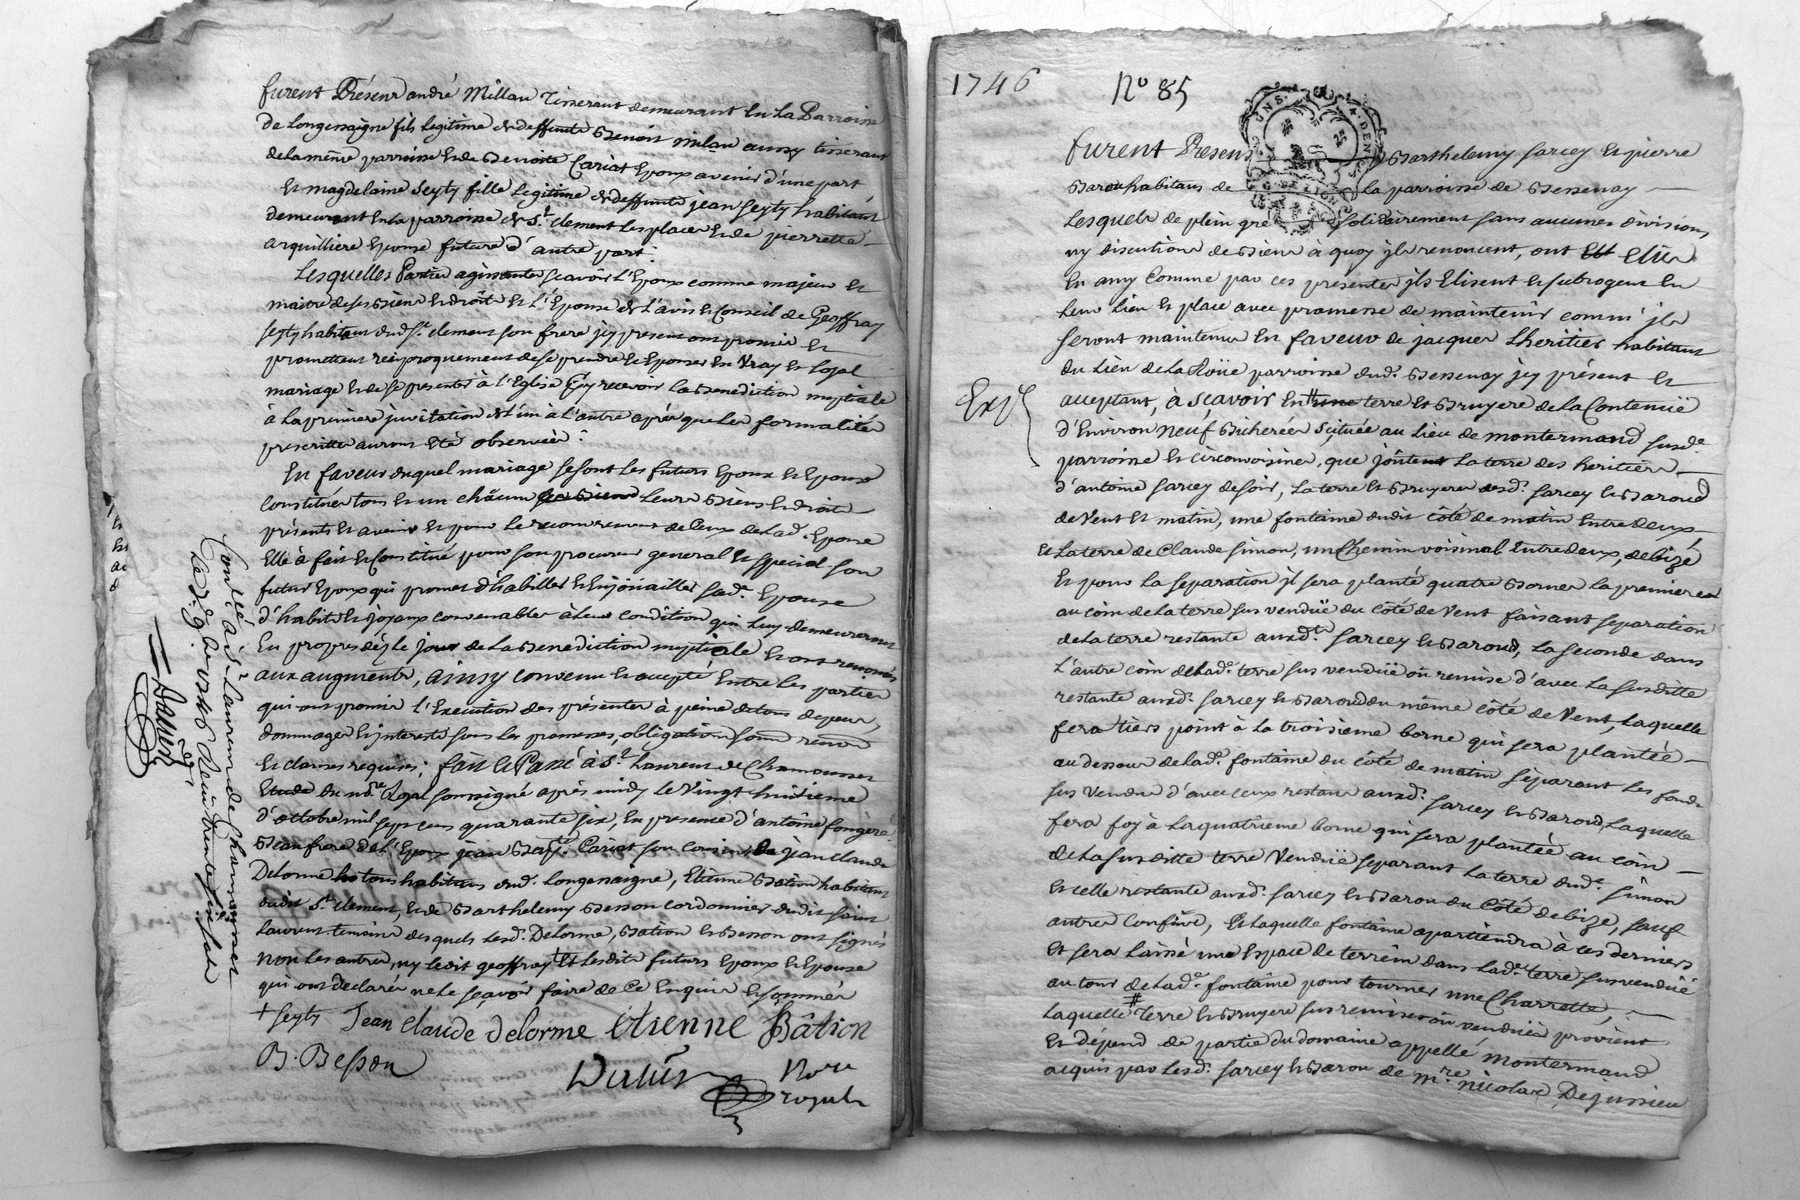 furent Présens andré Millan Tisserant demeurant en La Parroisse
de Longessaigne fils Legitime de deffunts Benoist milan aussy tisserant
dela même parroisse et de Benoite Cariat Epoux avenir d'une part
Et magdelaine Seyty fille Legitime de deffunts jean Seyty habitant
demeurant en la parroisse de St. Clement les places et de pierrette
arquilliere Epouse future d'autre part.
Lesquelles Parties agissantes scavoir L'Epoux comme majeur et
maitre de ses Biens et droits et L'Epouse de L'avis et Conseil de Geoffray
Seyty habitant dud. St. Clement son frere jcy present ont promis et
promettent reciproquement de se prendre et Epouser en Vray et Loyal
mariage et de se presenter à l'Eglise pour y recevoir la Benediction nuptiale
à La premiere jnvitation de L'un à L'autre après que Les formalités
prescrittes auront Eté observées.
En faveur duquel mariage se sont Les futurs Epoux et Epouse
Constitués tous et un châcun Leurs Biens et droits
présents et avenir et pour Le recouvrement de Ceux de Lad. Epouse
Elle à fait et Constitué pour son procureur general et special son
futur Epoux qui promet d'habiller et Enjoüailler sad. Epouse
d'habits et joyaux convenables à Leur condition qui Luy demeureront
En propres dez le jour de La Benediction nuptiale et ont renoncés
aux augments, ainsy convenu et accepté Entre Les parties
qui ont promis L'Execution des présentes à peine de tous depens,
dommages et interests sous Les promesses, obligations, renon
et clauses requises; fait et Passé à St. Laurent de Chamousset
Etude du nore. Royal soussigné après midy Le Vingt huitieme
d'octobre mil sept cens quarante six, En presence d'antoine fongere
Beaufrere de L'Epoux jean Bapte. Cariat son cousin jean Claude
Delorme tous habitans dud. Longessaigne, Etienne Bation habitant
dudit St. Clement, et de Barthelemy Besson cordonnier dudit saint
Laurent temoins desquels Lesd. Delorme, Bation et Besson ont signés
non Les autres, ny Ledit geoffray + et Lesdits futurs Epoux et Epouse
qui ont declarés ne Le sçavoir faire de Ce Enquis et sommés
+ Seyty Jean Claude delorme Etienne Bâtion
B. Besson
Nore
royal
Controllé à St. Laurent de Chamousset
1746
No 85
furent Presens Barthelemy Sarcey et pierre
Barou habitans de La parroisse de Bessenay
Lesquels de plein gré solidairement sans aucunes divisions
ny discutions de Biens à quoy jls renoncent, ont Elû
En amy Comme par ces presentes jls Elisent et subrogent En
Leur Lieu et place avec promesse de maintenir comm' jls
seront maintenus En faveur de jacques Lheritier habitant
du Lieu de La Roüe parroisse dud. Bessenay jcy présent et
Exp.
acceptant, à sçavoir En # terre et Bruyere de La Contenüe
d'Environ neuf Bicherées Scituée au Lieu de montermand susde.
parroisse et circonvoisines, que joûtent La terre des heritiers
d'antoine Sarcey de soir, La terre et Bruyeres desd. Sarcey et Baroud
de Vent et matin, une fontaine dudit Côté de matin Entre deux
Et La terre de Claude Simon, un Chemin voisinal Entre deux, de bizé
Et pour La separation jl sera planté quatre Bornes La premiere
au coin de La terre sus vendüe du côté de Vent faisant separation
de La terre restante auxdts. Sarcey et Baroud, La seconde dans
L'autre coin de Lade. terre sus vendüe ou remise d'avec La susditte
restante auxd. Sarcey et Baroud du même côté de Vent, Laquelle
fera tiers point à La troisieme borne qui sera plantée
au dessous de Lade. fontaine du côté de matin séparant Les fonds
sus vendus d'avec ceux restans auxd. Sarcey et Baroud, Laquelle
fera foy à La quatrieme borne qui sera plantée au coin
de La susditte terre Vendüe separant La terre dud. Simon
et celle restante auxd. Sarcey et Barou du Côté de bize, sauf
autres Confins, Et Laquelle fontaine apartiendra à ces derniers
Et sera Laissé un Espace de terrein dans Lade. terre susvendüe
au tour de Lade. fontaine pour tourner une Charrette,
Laquelle # terre et Bruyere sus remises ou vendües provient
Et dépend de partie du domaine appellé montermand
acquis par Lesd. Sarcey et Barou de mre. nicolas Dejussieu